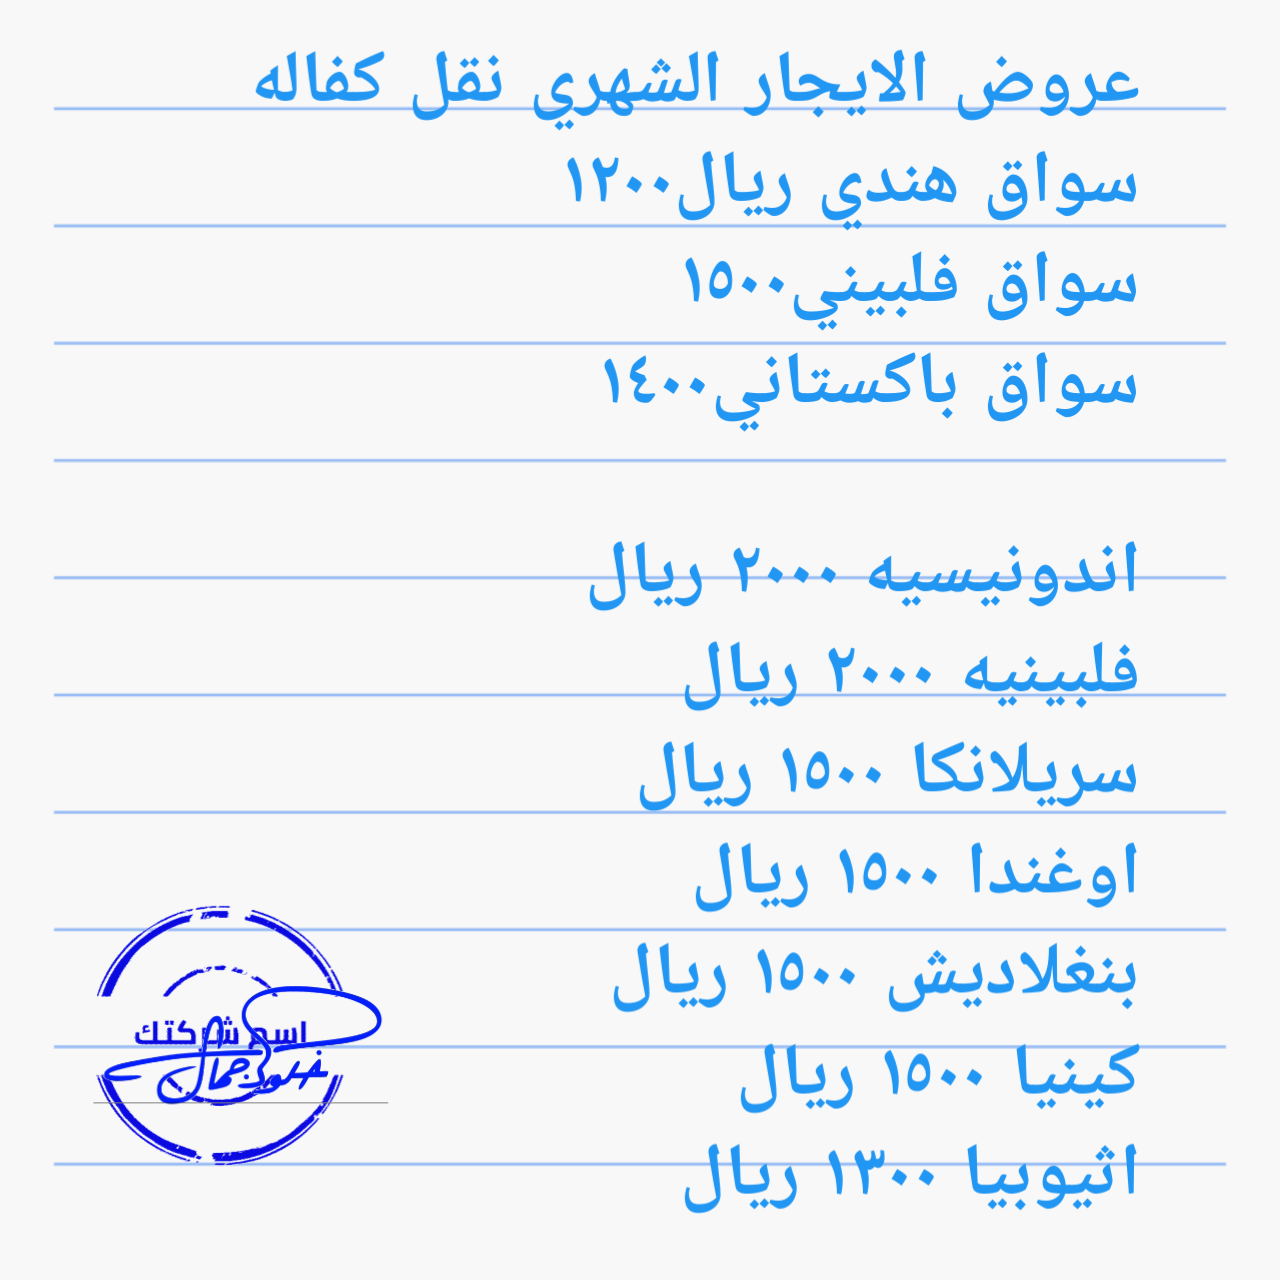 عروض الايجار الشهري نقل كفاله
سواق هندي ريال١٢٠٠
سواق فلبيني١٥٠٠
سواق باكستاني١٤٠٠
اندونيسيه ٢٠٠٠ ريال
فلبينيه ٢٠٠٠ ريال
سريلانكا ١٥٠٠ ريال
اوغندا ١٥٠٠ ريال
بنغلاديش ١٥٠٠ ريال
كينيا ١٥٠٠ ريال
اثيوبيا ١٣٠٠ ريال
اسم شركتك